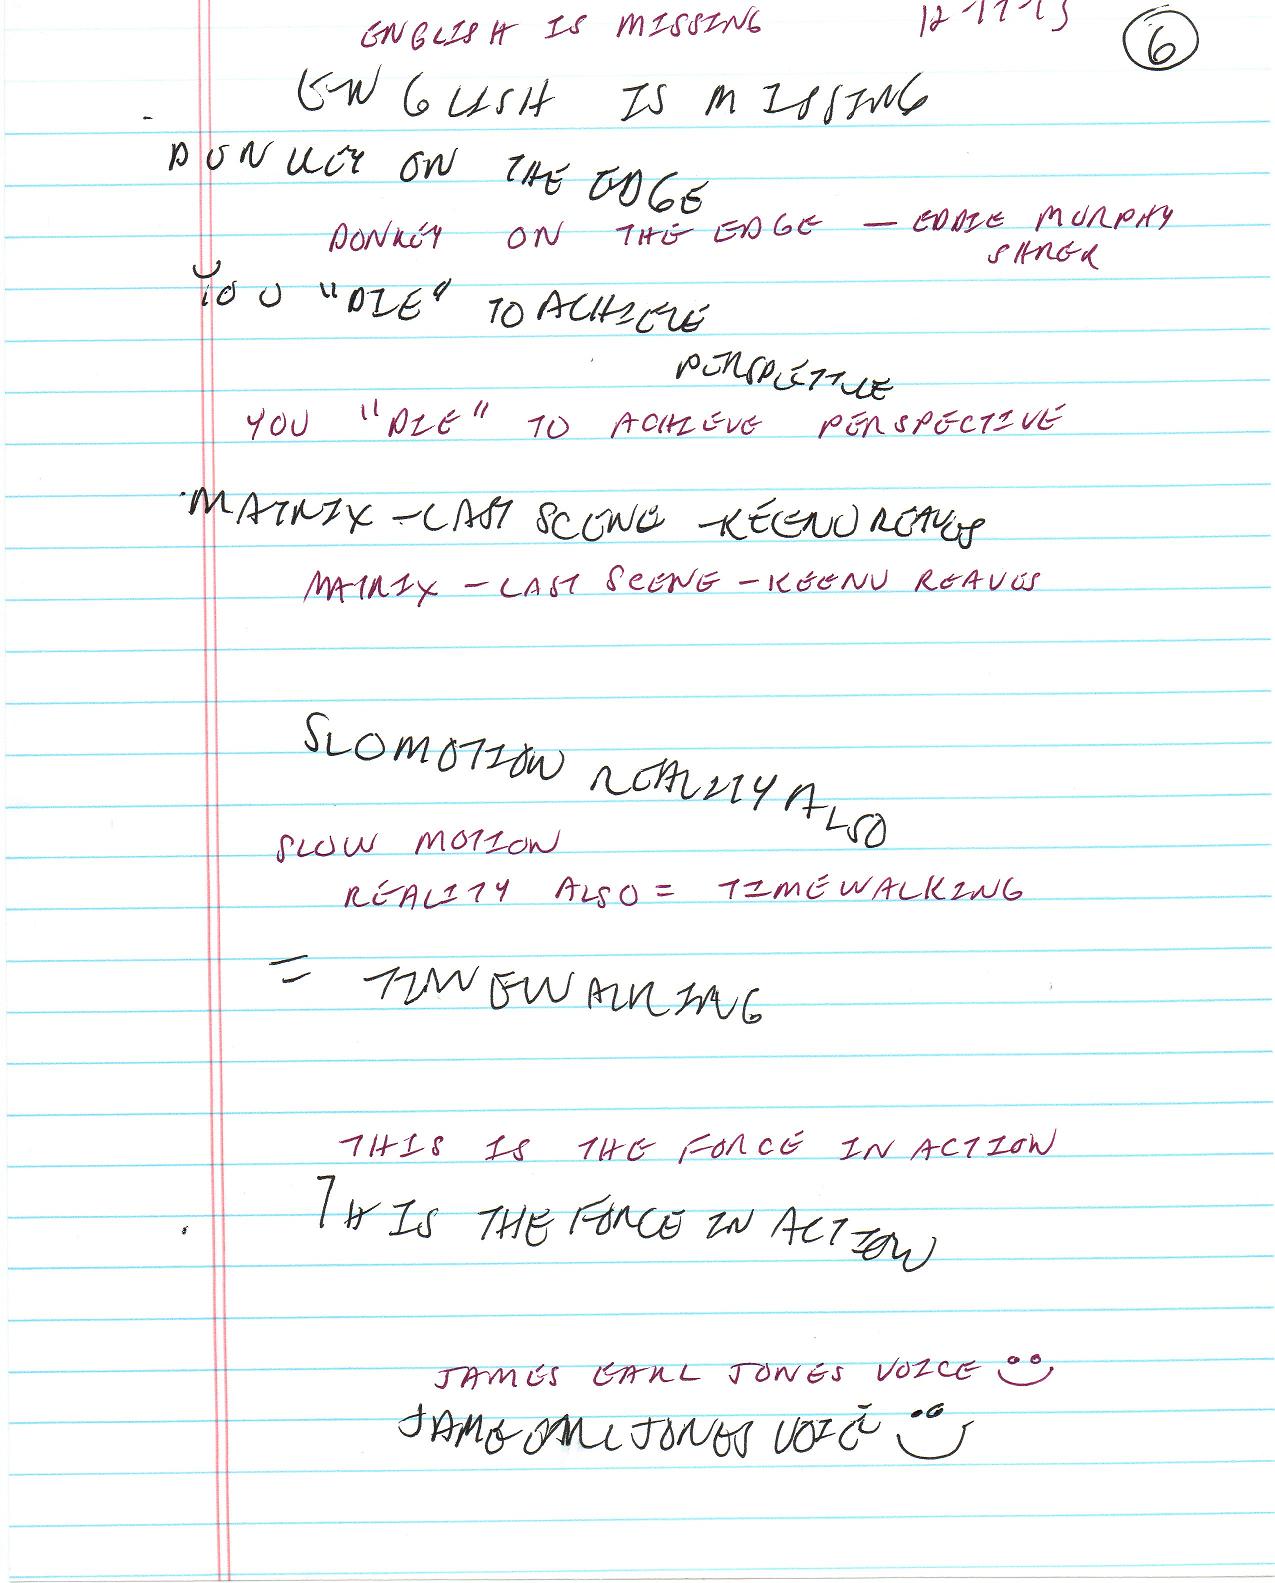 ENGLISH IS MISSING
6
ENGLISH IS MISSING
DONKEY ON THE EDGE
DONKEY ON THE EDGE — EDDIE MURPHY
SHREK
YOU "DIE" TO ACHIEVE
PERSPECTIVE
YOU "DIE" TO ACHIEVE PERSPECTIVE
MATRIX - LAST SCENE - KEENU REAVES
MATRIX - LAST SCENE - KEENU REAVES
SLOMOTION REALITY ALSO
SLOW MOTION
REALITY ALSO = TIMEWALKING
= TIMEWALKING
THIS IS THE FORCE IN ACTION
THIS IS THE FORCE IN ACTION
JAMES EARL JONES VOICE
JAMES EARL JONES VOICE